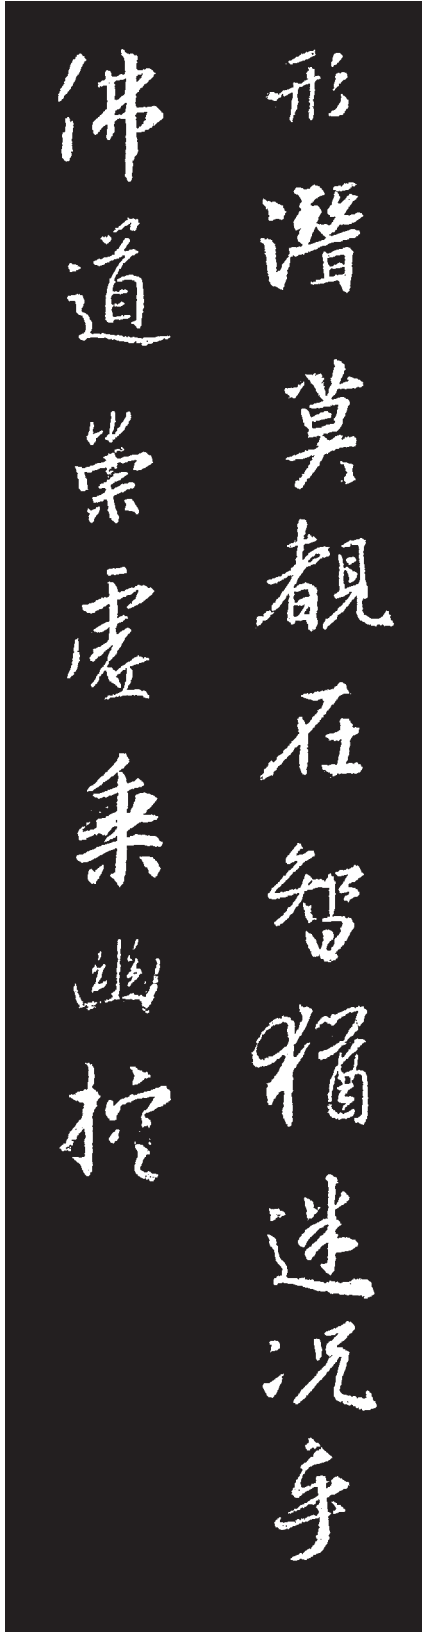 形潛莫覩在智猶迷况乎
佛道崇虛乗幽控